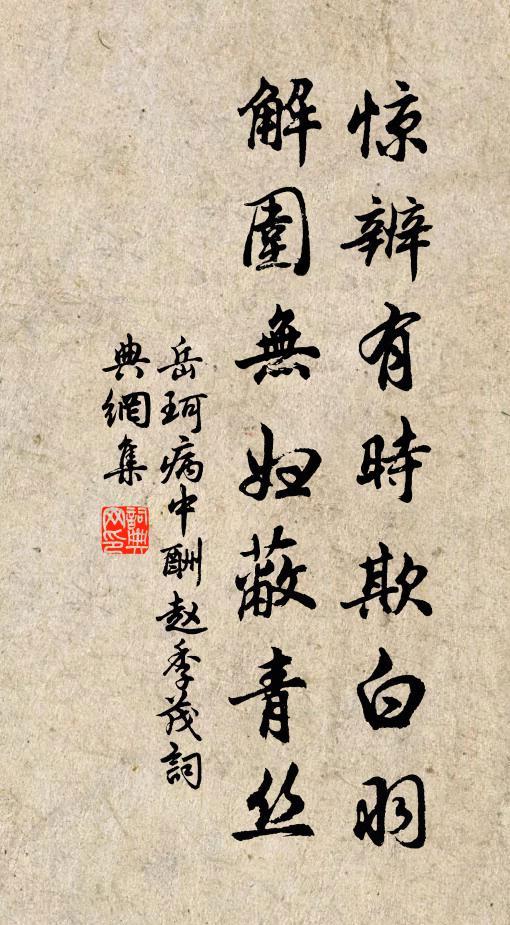 惊辨有時欺白羽
解圍無妇蔽青丝
岳珂病中酬赵季茂詞
典網集
詞典网印